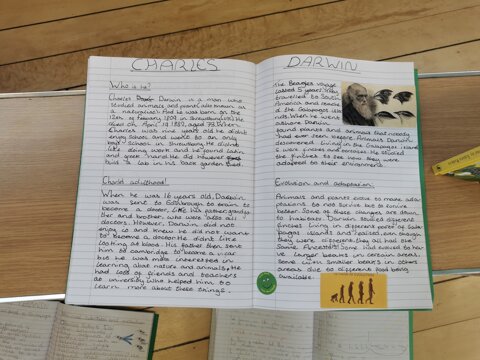 CHARLES DARWIN
Who is he?
Charles Darwin is a man who
studied animals and plants, also known as
a naturalist. And he was born on the
12th of February 1809 in Shrewsbury. He
died on April 19 1882, aged 73. When
Charles was nine years old he didn't
enjoy school and went to an only
boys School in Shrewsbury. He didn't
like doing work and found Latin
and greek hard. He did however
has a lab in his back garden shed.
Charles' adulthood!
When he was 16 years old, Darwin
was sent to Edinburgh to train to
become a doctor, like his father, grandfa
ther and brother, who were also all
doctors. However, Darwin did not
enjoy it and knew he did not want
to become a doctor. He didn't like
looking at blood. His father then sent
him to cambridge to become a vicar
but he was more interested in
learning about nature and animals. He
had lots of friends and teachers
at university who helped him to
learn more about these things.
The Beagles voyage
lasted 5 years. They
travelled to South
America and reached
the Galapagos isla
nds. When he went
ashore Darwin
found plants and animals that nobody
had ever seen before. Animals Darwin
discovered living in the Galapagos island
s were finches and tortoises. He studied
the finches to see how they were
adapted to their enviroment.
Evolution and adaptation:
Animals and plants evolve to make ada
ptations to not survive but to thrive
better. Some of these changes are down
to habitat. Darwin studied different
finches living on different parts of Gala
pagos islands and realised, even though
they were different, they all had the
same Ancestors. Some had evolved to ha
ve larger beaks in certain areas.
Some with smaller beaks in others
areas due to different food being
available.